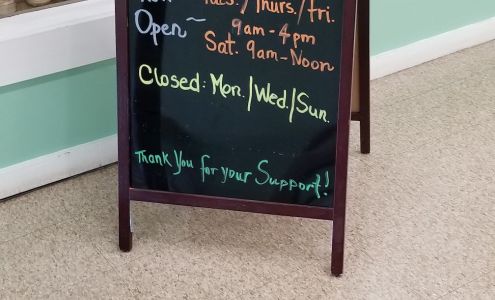 Now Tues./Thurs./Fri.
Open~ 9am-4pm
Sat. 9am-Noon
Closed: Mon./Wed./Sun.
Thank You for your Support!